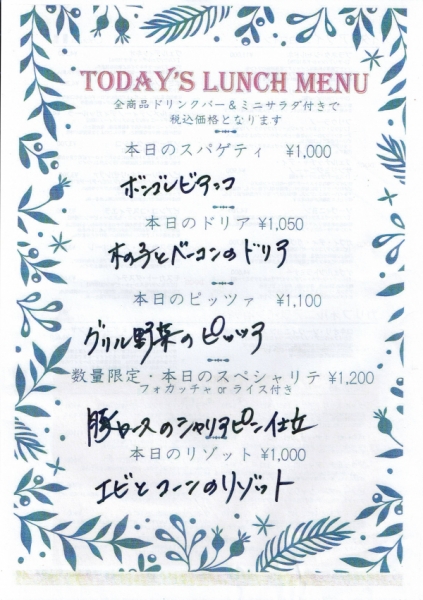 TODAY'S LUNCH MENU
全商品ドリンクバー＆ミニサラダ付きで
税込価格となります
本日のスパゲティ ¥1,000
ボンゴレビアンコ
本日のドリア ¥1,050
木の子とベーコンのドリア
本日のピッツァ ¥1,100
グリル野菜のピッツァ
数量限定・本日のスペシャリテ ¥1,200
フォカッチャ or ライス付き
豚ロースのシャリアピン仕立
本日のリゾット ¥1,000
エビとコーンのリゾット